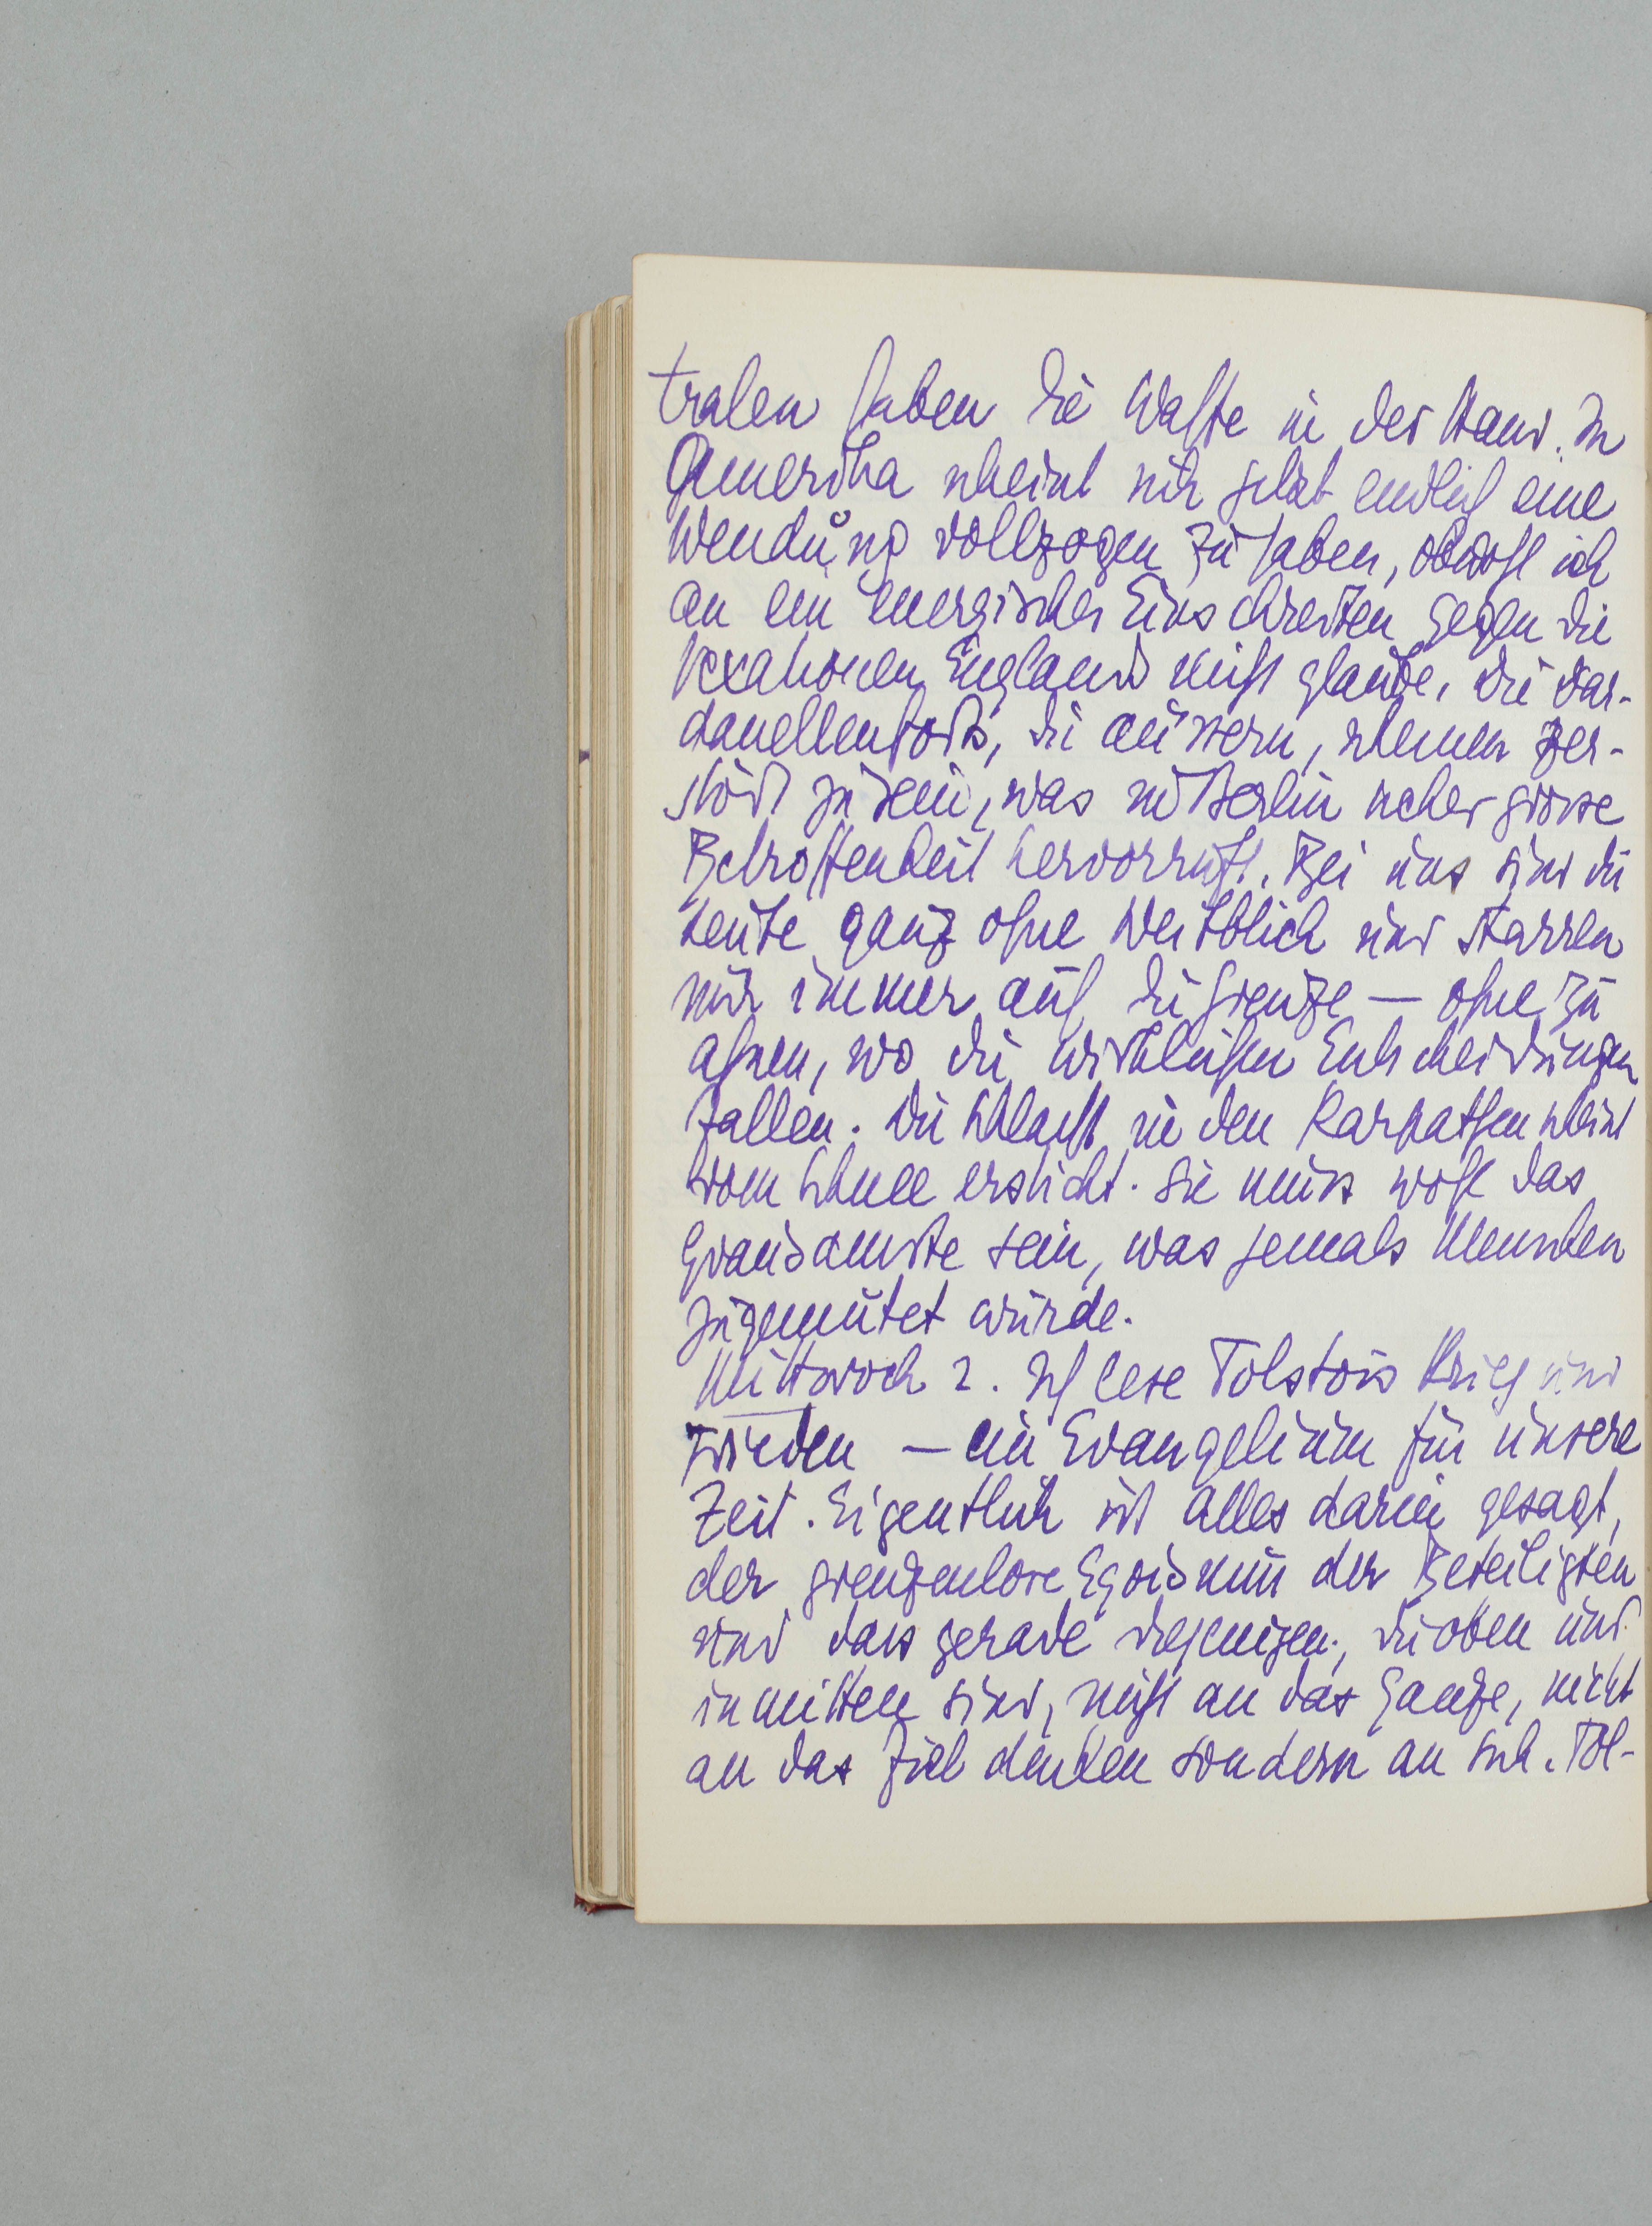 tralen haben die Waffe in der Hand. In
Amerika scheint sich jetzt endlich eine
Wendung vollzogen zu haben, obwohl ich
an ein energisches Einschreiten gegen die
Vexationen Englands nicht glaube. Die Dar-
danellenforts, die äussern, scheinen zer-
stört zu sein, was in Berlin sicher grosse
Betroffenheit hervorruft. Bei uns sind die
Leute ganz ohne Weitblick und starren
nur immer auf die Grenze – ohne zu
ahnen, wo die wirklichen Entscheidungen
fallen. Die Schlacht in den Karpathen scheint
vom Schnee erstickt. Sie muss wohl das
Grausamste sein, was jemals Menschen
zugemutet wurde.
Mittwoch 2. Ich lese Tolstois Krieg und
Frieden – ein Evangelium für unsere
Zeit. Eigentlich ist alles darin gesagt,
der grenzenlose Egoismus der Beteiligten
und dass gerade diejenigen, die oben und
inmitten sind, nicht an das Ganze, nicht
an das Ziel denken sondern an sich. Tol-